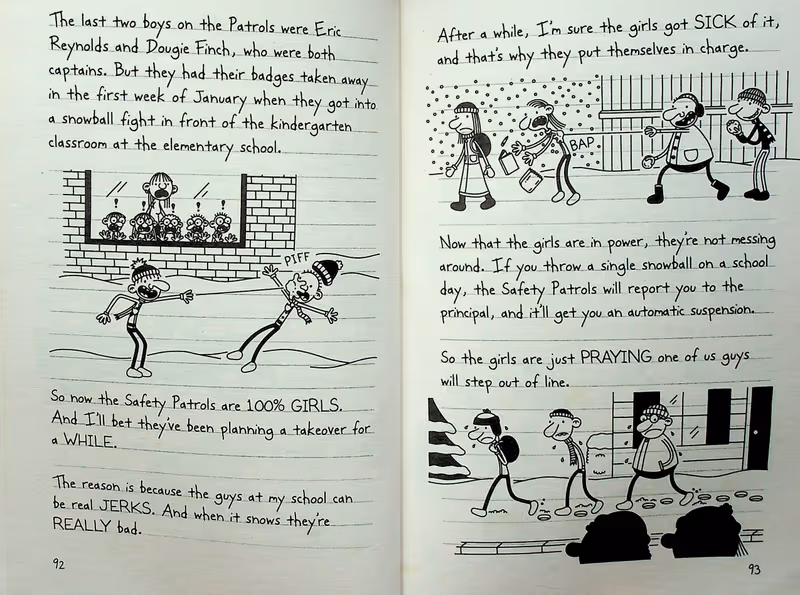 The last two boys on the Patrols were Eric
Reynolds and Dougie Finch, who were both
captains. But they had their badges taken away
in the first week of January when they got into
a snowball fight in front of the kindergarten
classroom at the elementary school.
! ! ! ! !
PIFF
So now the Safety Patrols are 100% GIRLS.
And I'll bet they've been planning a takeover for
a WHILE.
The reason is because the guys at my school can
be real JERKS. And when it snows they're
REALLY bad.
92
After a while, I'm sure the girls got SICK of it,
and that's why they put themselves in charge.
BAP
Now that the girls are in power, they're not messing
around. If you throw a single snowball on a school
day, the Safety Patrols will report you to the
principal, and it'll get you an automatic suspension.
So the girls are just PRAYING one of us guys
will step out of line.
93